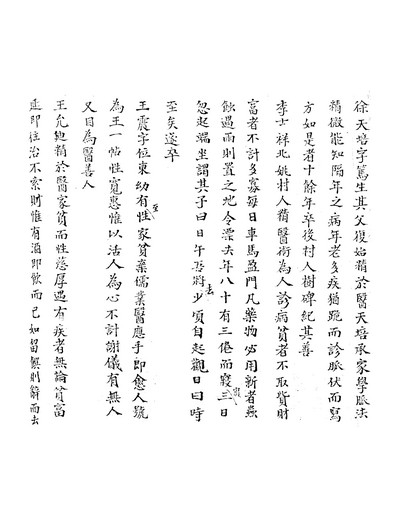 徐天培字篤生其父復始精於醫天培承家學脈法
精微能知隔年之病年老多疾猶跪而診脈伏而寫
方如是者十餘年卒後村人樹碑紀其善
李士祥北姚村人精醫術為人診病貧者不取貲財
富者不計多寡每日車馬盈門凡藥物必用新者無
蝕過雨則置之地令漂去年八十有三倦而寢三日
忽起端坐謂其子曰日午吾將去少頃自起觀日曰時
至矣遂卒
王震字位東幼有至性家貧棄儒業醫應手即愈人號
為王一帖性寬惠惟以活人為心不計謝儀有無人
又目為醫善人
王允迪精於醫家貧而性慈厚遇有疾者無論貧富
延即往治不索則惟有酒即飲而已如留無則辭而去